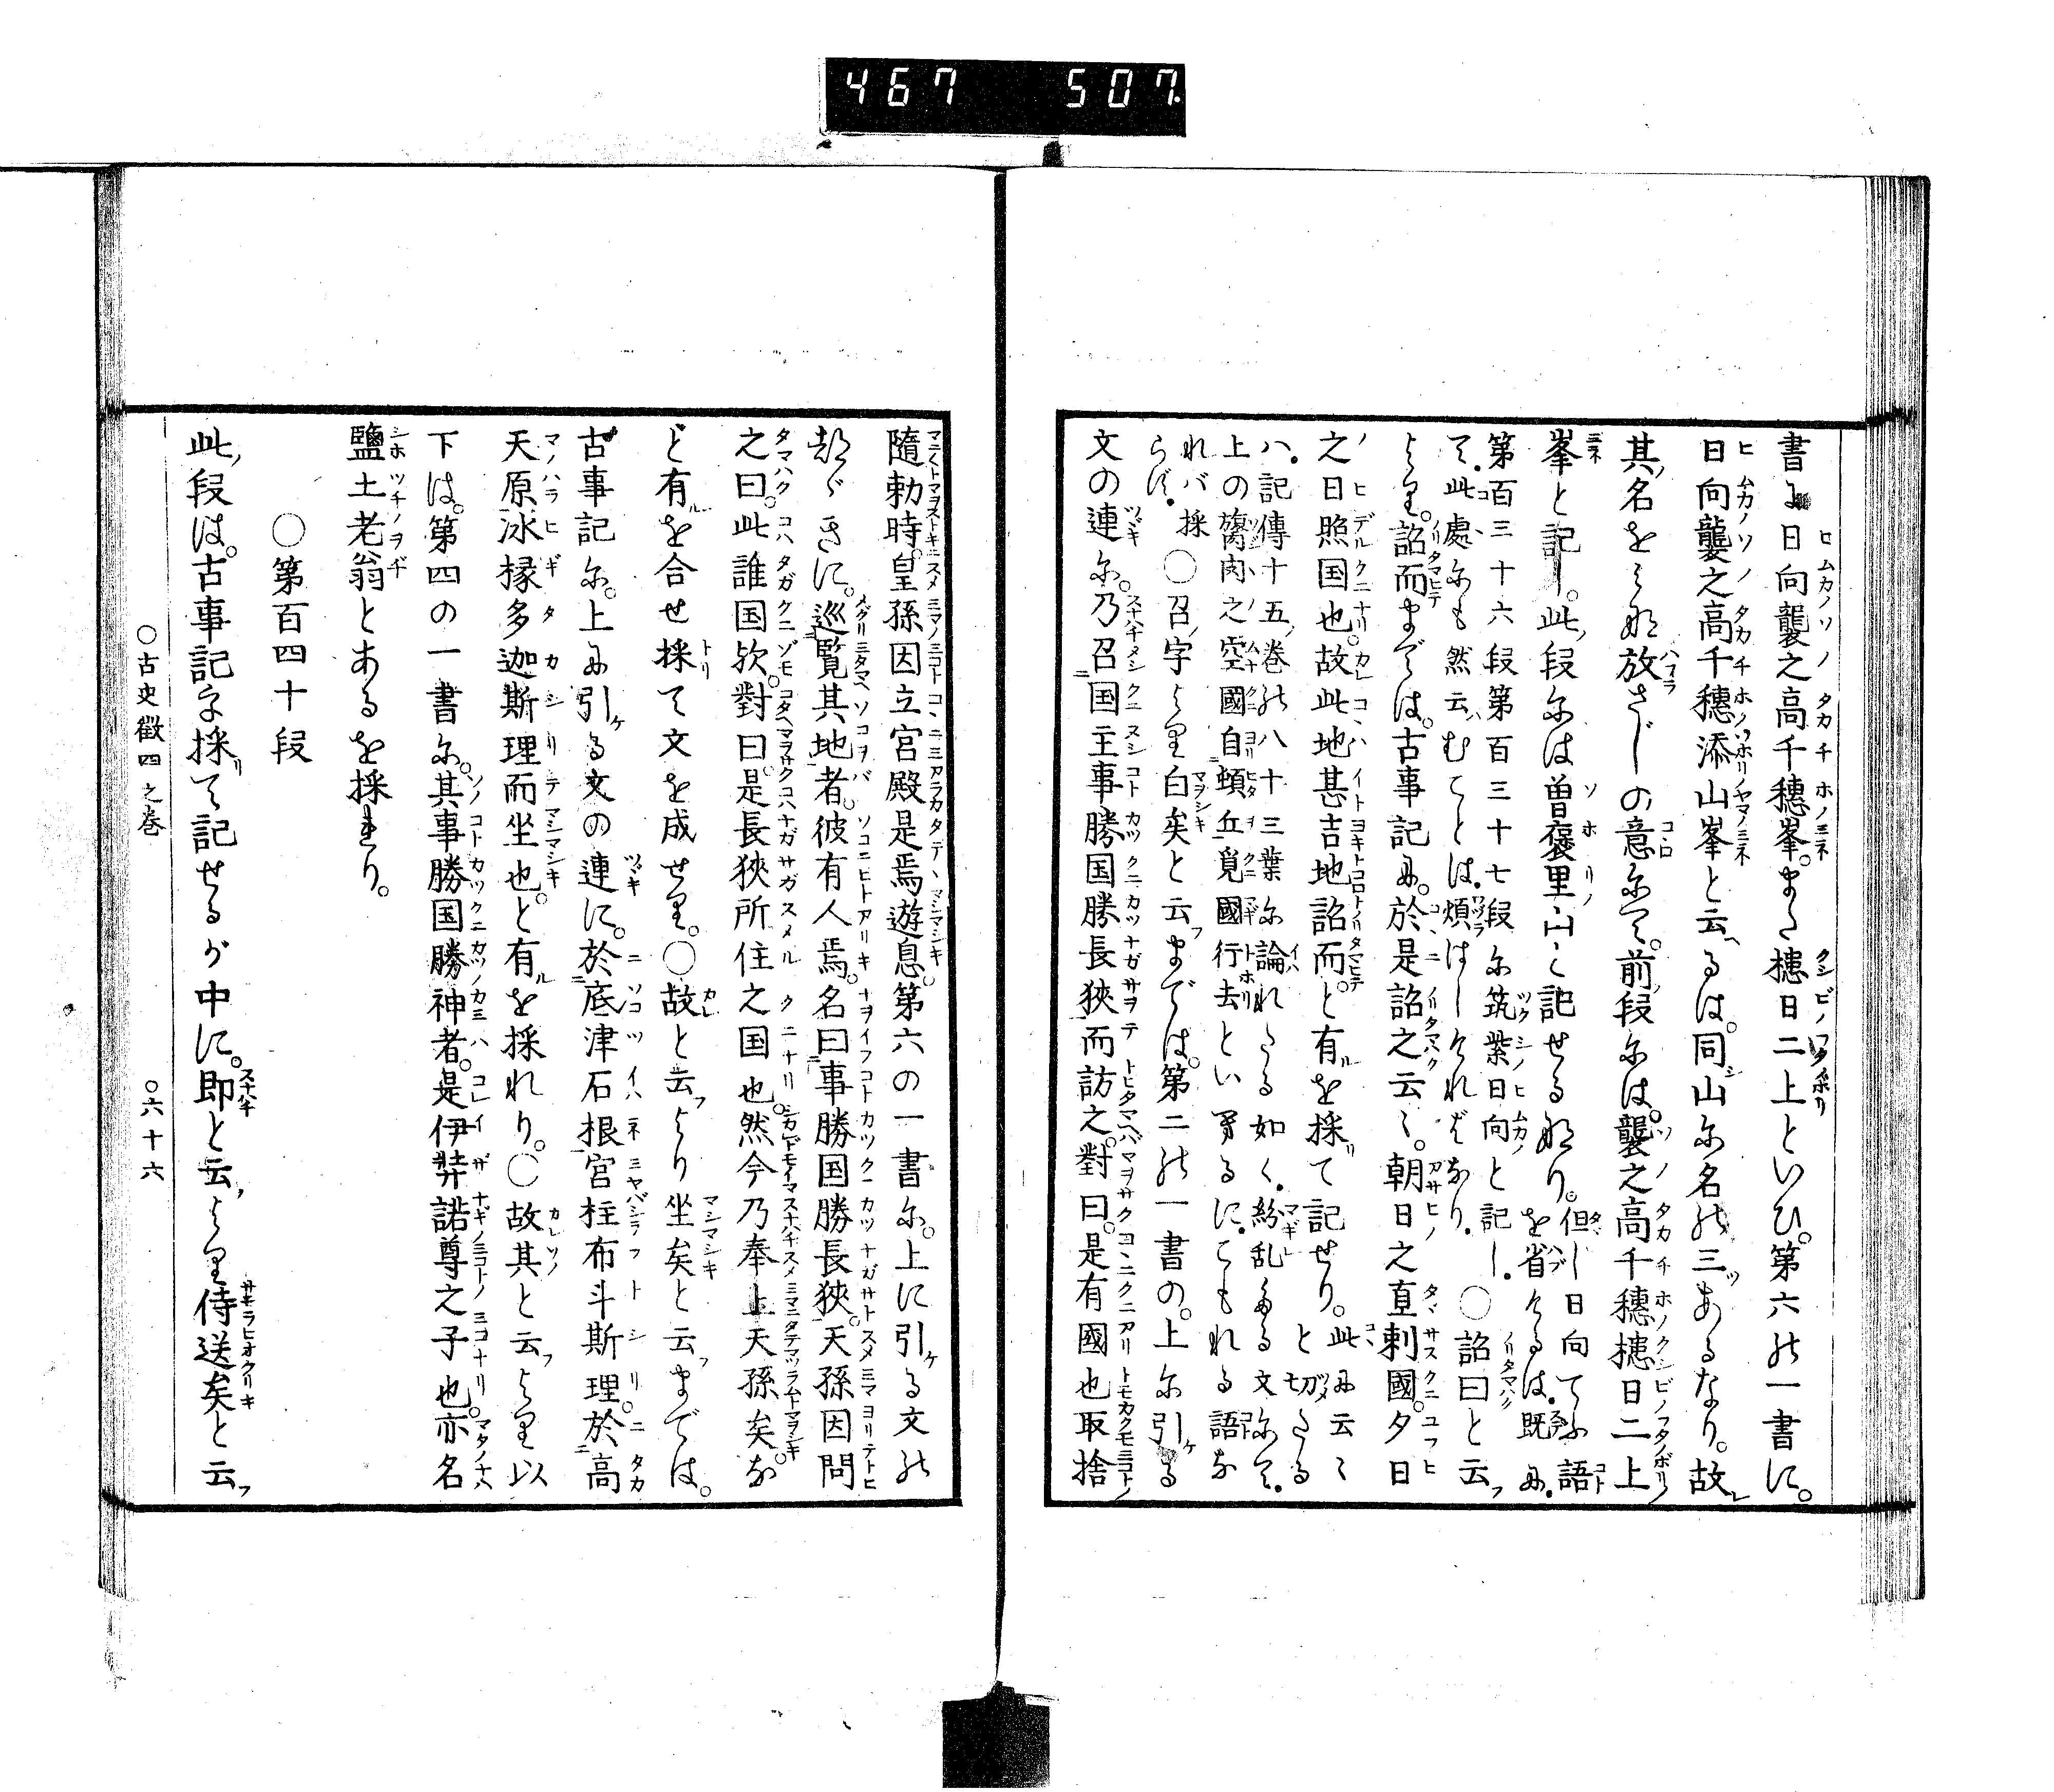 467 507.
書に日向襲之高千穂峯。また槵日二上といひ。第六の一書に。
日向襲之高千穂添山峯と云るは。同山に名の三あるなり。故
其名をえ放さじの意にて。前段には。襲之高千穂槵日二上
峯と記し。此段には曽褒里山と記せるなり。但し日向てふ語
を省けるは。既に。
第百三十六段第百三十七段に筑紫日向と記し。
て。此處にも然云むことは。煩はしければなり。
○詔曰と云
より。詔而までは。古事記に。於是詔之云々。朝日之直刺國。夕日
之日照国也。故此地甚吉地詔而。と有を採て記せり。此に云々
と切たる
ハ。記傳十五巻の八十三葉に論れたる如く。紛乱たる文にて。
上の膂肉之空國自頓丘覓國行去といふるに。こもれる語な
れバ採
らず。○召字より白矣と云までは。第二の一書の。上に引る
文の連に。乃召国主事勝国勝長狹而訪之。對曰。是有國也取捨
隨勅時。皇孫因立宮殿是焉遊息。第六の一書に。上に引る文の
都づきに。巡覧其地者。彼有人焉。名曰事勝国勝長狹。天孫因問
之曰。此誰国欤。對曰。是長狹所住之国也。然今乃奉上天孫矣。な
ど有を合せ採て文を成せり。○故と云より坐矣と云までは。
古事記に。上に引る文の連に。於底津石根宮柱布斗斯理。於高
天原冰椽多迦斯理而坐也。と有を採れり。○故其と云より以
下は。第四の一書に。其事勝国勝神者。是伊弉諾尊之子也。亦名
鹽土老翁とあるを採まり。
○第百四十段
此段は。古事記を採て記せるが中に。即と云より侍送矣と云
○古史徴四之巻 ○六十六